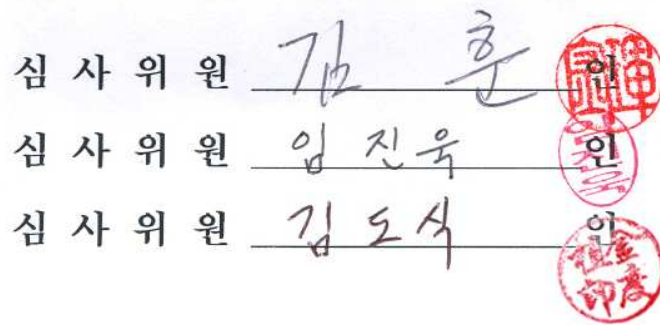 심 사 위 원 김 훈 인
심 사 위 원 임진욱 인
심 사 위 원 김도식 인